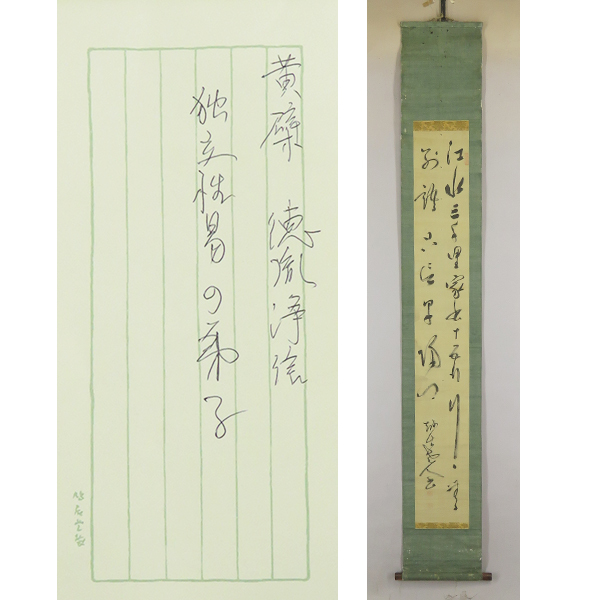 黄檗 徳胤浄
独立性易の弟子
江水三千里家書十五行行〻無
別語只道早帰郷
道人書